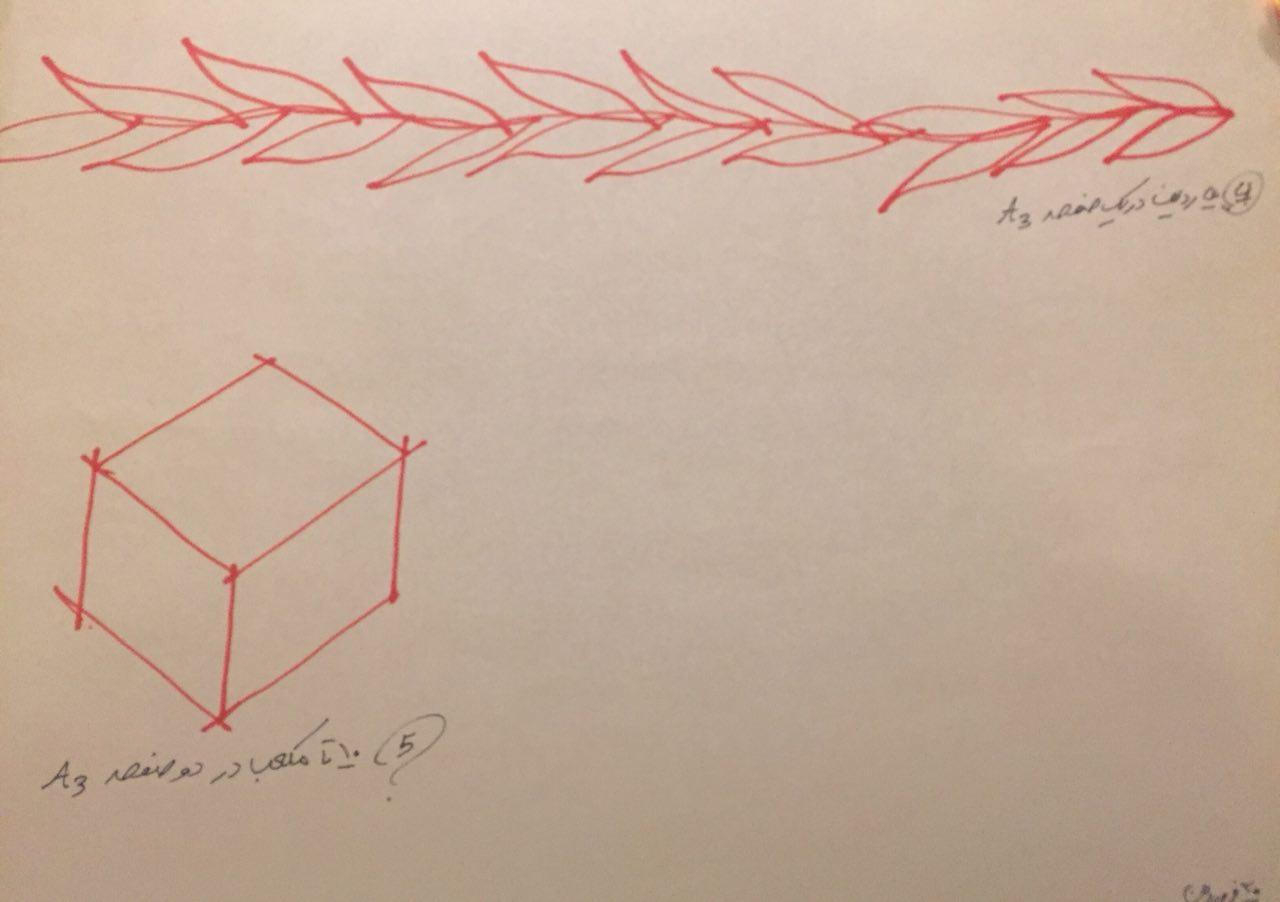 ④ ۵ ردیف در یک صفحه A3
⑤ ۱۰ تا مکعب در دو صفحه A3